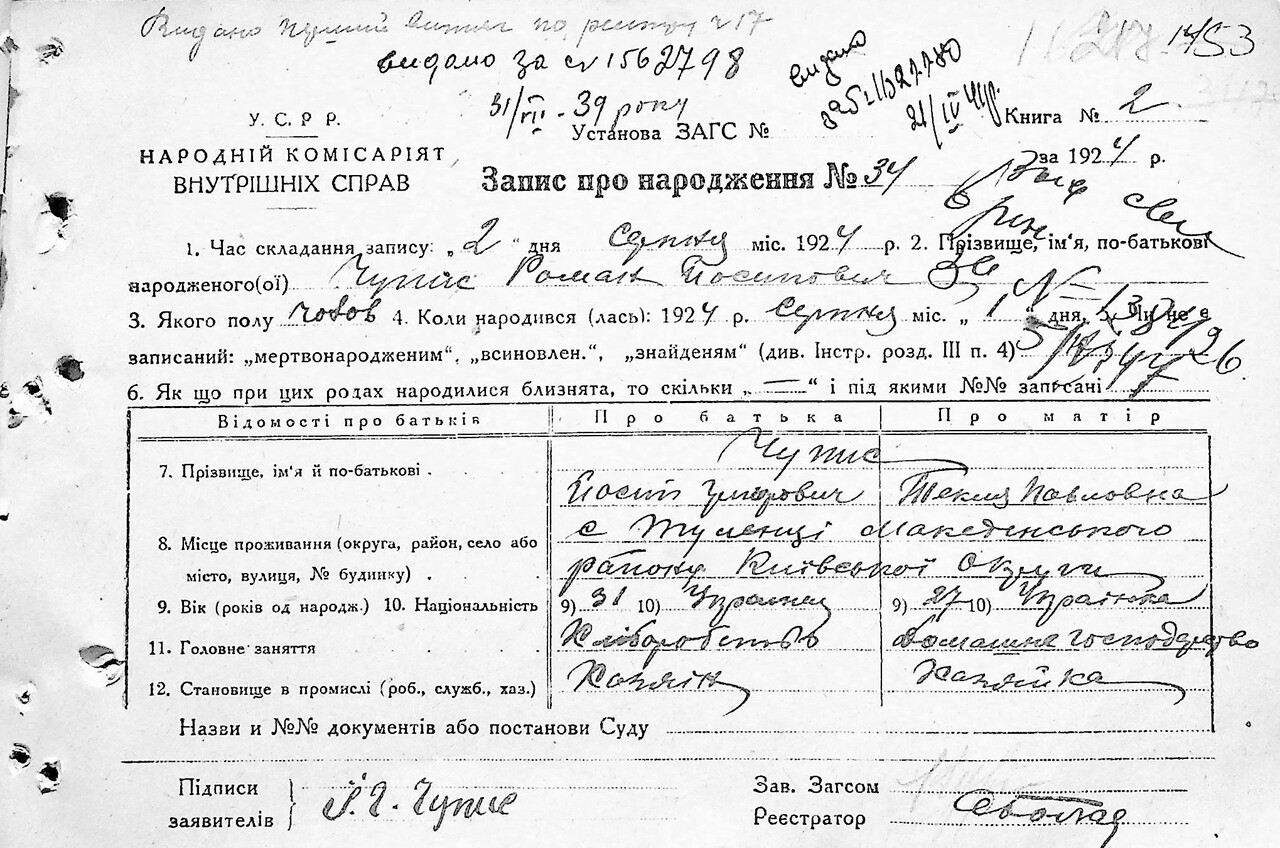 Видано перший витяг по реєстру ч 17
видано за сг 1562798
видано
31/VII - 39 року
21/IV
1453
У. С. Р. Р.
НАРОДНІЙ КОМІСАРІЯТ
ВНУТРІШНІХ СПРАВ
Установа ЗАГС №
Книга № 2
за 1924 р.
Запис про народження № 34
1. Час складання запису: „ 2 “ дня Серпня міс. 1924 р. 2. Прізвище, ім'я, по-батькові
народженого(ої) Чупис Роман Йосипович
3. Якого полу чолов 4. Коли народився (лась): 1924 р. Серпня міс. „ 1 “ дня, 5. Чи не є
записаний: „мертвонародженим“, „всиновлен.“, „знайденям“ (див. Інстр. розд. III п. 4)
6. Як що при цих родах народилися близнята, то скільки „ — “ і під якими №№ записані
Відомості про батьків Про батька Про матір
Чупис
7. Прізвище, ім'я й по-батькові . Йосип Григорович Текля Павловна
8. Місце проживання (округа, район, село або с Туленці Македонського
місто, вулиця, № будинку) . . району Київської Округи
9. Вік (років од народж.) 10. Національність 9) 31 10) Українец 9) 27 10) Українка
11. Головне заняття . . . . Хліборобство Домашне господарство
12. Становище в промислі (роб., служб., хаз.) Хазяїн Хазяйка
Назви и №№ документів або постанови Суду
Підписи
заявителів
Й. Г. Чупис
Зав. Загсом
Реєстратор